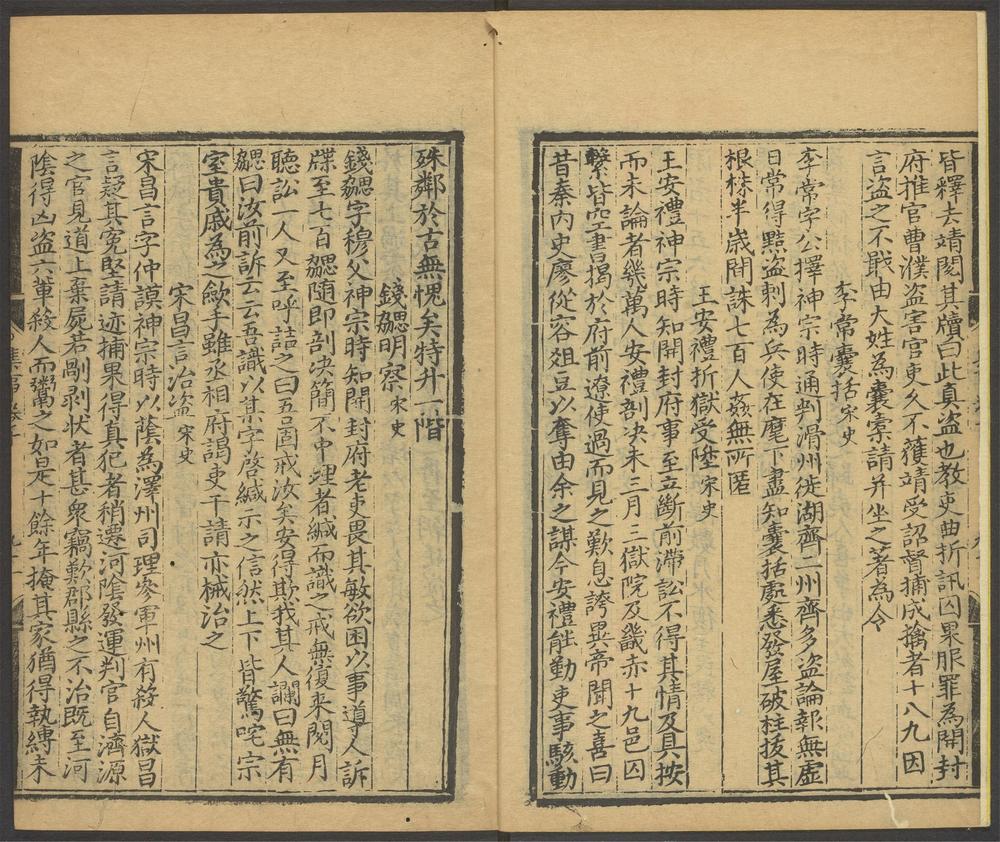 皆釋去靖閱其牘曰此真盜也教吏曲折訊囚果服罪為開封
府推官曹濮盜害官吏久不獲靖受詔督捕成擒者十八九因
言盜之不戢由大姓為囊橐請并坐之著為令
李常囊括宋史
李常字公擇神宗時通判滑州徙湖齊二州齊多盜論報無虛
日常得黠盜刺為兵使在麾下盡知囊括處悉發屋破柱拔其
根株半歲間誅七百人姦無所匿
王安禮折獄受陞宋史
王安禮神宗時知開封府事至立斷前滯訟不得其情及具按
而未論者幾萬人安禮剖決未三月三獄院及畿赤十九邑囚
繫皆空書揭於府前遼使過而見之歎息誇異帝聞之喜曰
昔秦內史廖從容俎豆以奪由余之謀今安禮能勤吏事駭動
殊鄰於古無愧矣特升一階
錢勰明察宋史
錢勰字穆父神宗時知開封府老吏畏其敏欲困以事導人訴
牒至七百勰隨即剖決簡不中理者緘而識之戒無復來閱月
聽訟一人又至呼詰之曰吾固戒汝矣安得欺我其人讕曰無有
勰曰汝前訴云云吾識以某字啓緘示之信然上下皆驚咤宗
室貴戚為之歛手雖丞相府謁吏干請亦械治之
宋昌言治盜宋史
宋昌言字仲謨神宗時以蔭為澤州司理參軍州有殺人獄昌
言疑其冤堅請迹捕果得真犯者稍遷河陰發運判官自濟源
之官見道上棄屍若剮剥狀者甚衆竊歎郡縣之不治既至河
陰得凶盜六輩殺人而鬻之如是十餘年掩其家猶得執縛未